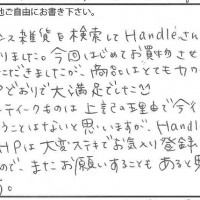 他ご自由にお書き下さい。
ンス雑貨を検索してHandleさん
りました。今回はじめてお買物させ
ただきましたが、商品はとてもカワ
Pどおりで大満足でした
ティークものは上記の理由で今
うことはないと思いますが、Handl
HPは大変ステキでお気入り登録
ので、またお願いすることもあると思
う。